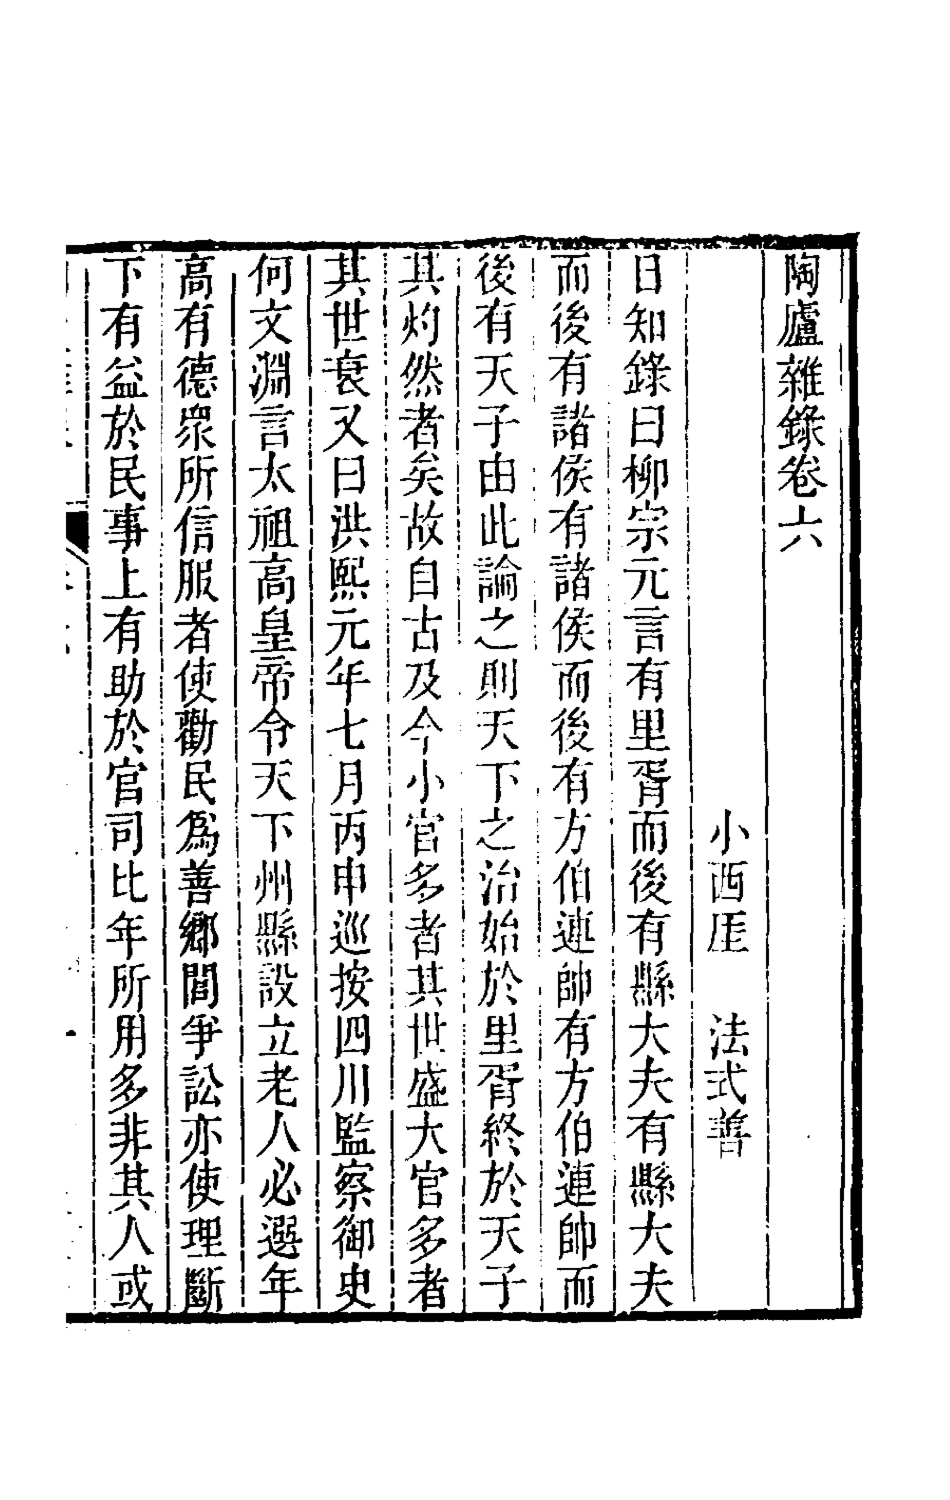 陶廬雜錄卷六
小西厓　法式善
日知錄曰柳宗元言有里胥而後有縣大夫有縣大夫
而後有諸侯有諸侯而後有方伯連帥有方伯連帥而
後有天子由此論之則天下之治始於里胥終於天子
其灼然者矣故自古及今小官多者其世盛大官多者
其世衰又曰洪熙元年七月丙申巡按四川監察御史
何文淵言太祖高皇帝令天下州縣設立老人必選年
高有德眾所信服者使勸民爲善鄉閭爭訟亦使理斷
下有益於民事上有助於官司比年所用多非其人或